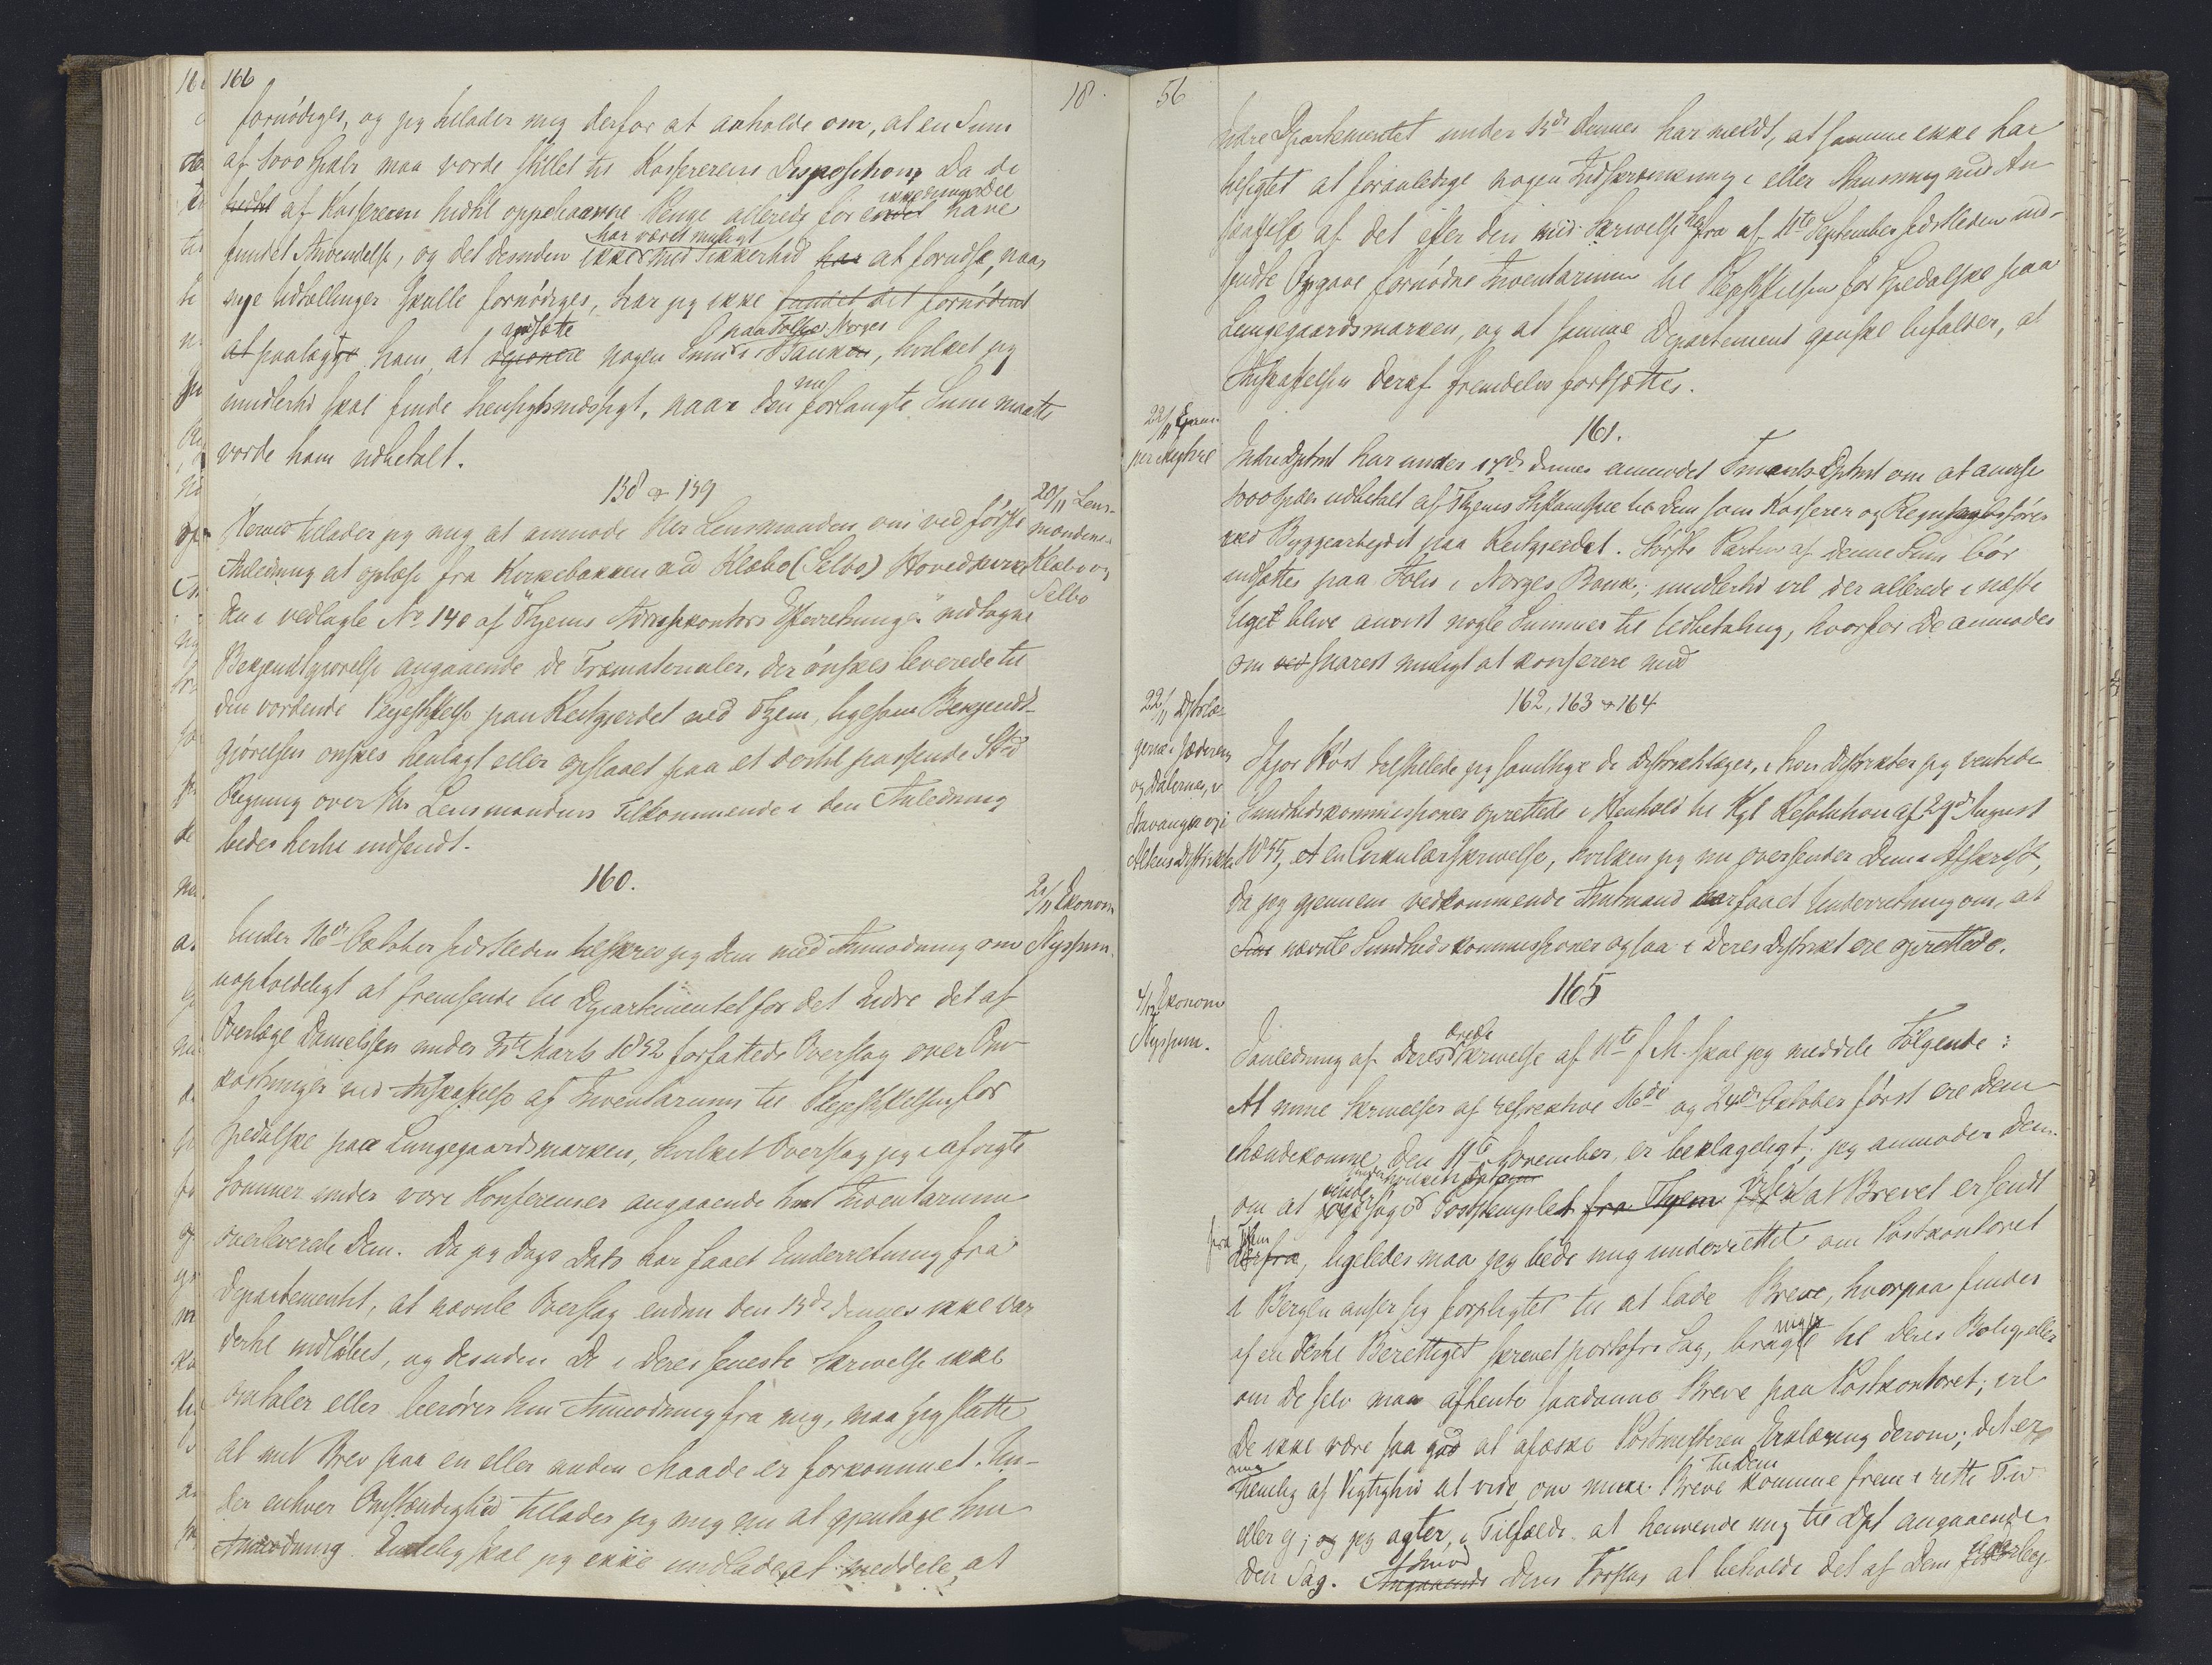 166
18
fornødiges, og jeg tillader mig derfor at anholde om, at en Sum
af 5000 Spdlr maa vorde stillet til Kassererens Disposition. Da de
hidtil af Kassereren hidtil oppebaarne Penge allerede for ikke ringe Deel have
fundet Anvendelse, og det desuden ikke har været muligt med Sikkerhed har at forudse, naar
nye Udtællinger skulle fornødiges, har jeg ikke fundet det fornødent
at paalægge ham, at indsætte deponere nogen Sum paa Folio i Norges Banken, hvilket jeg
imidlertid skal finde hensigtsmæssigt, naar den nu forlangte Sum maatte
vorde ham udbetalt.
158 & 159
20/11 Lens-
mændene i
Klæbo og
Selbo
Herved tillader jeg mig at anmode Hr Lensmanden om ved første
Anledning at oplæse fra Kirkebakken ved Klæbo (Selbo) Hovedkirke
den i vedlagte No 140 af "Thjems Adressekontors Efterretninger" indtagne
Bekjendtgjørelse angaaende de Træmaterialer, der ønskes leverede til
den vordende Plejestiftelse paa Reitgjerdet ved Thjem, ligesom Bekjendt-
gjørelsen ønskes henlagt eller opslaaet paa et dertil passende Sted
Regning over Hr Lensmandens Tilkommende i den Anledning
bedes hertil indsendt.
160.
21/11 Ekonom
Nyssum.
Under 16de Oktober sidstleden tilskrev jeg Dem med Anmodning om
uopholdeligt at fremsende til Departementet for det Indre det af
Overlæge Danielssen under 3die Marts 1852 forfattede Overslag over Om-
kostninger ved Anskaffelse af Inventarium til Plejestiftelsen for
Spedalske paa Lungegaardsmarken, hvilket Overslag jeg i afvigte
Sommer under vore Konferenser angaaende hint Inventarium
overleverede Dem. Da jeg Dags Dato har faaet Underretning fra
Departementet, at nævnte Overslag endnu den 15de dennes ikke var
dertil indløbet, og desuden De i Deres seneste Skrivelse ikke
omtaler eller berører hin Anmodning fra mig, maa jeg slutte
at mit Brev paa en eller anden Maade er forkommet. Un-
der enhver Omstændighed tillader jeg mig nu at gjentage hin
Anmodning. Endelig skal jeg ikke undlade at meddele, at
56
Indre Departementet under 15de dennes har meldt, at samme ikke har
besigtet at foranledige nogen Indskrænkning i eller Standsning med An-
skaffelse af det efter den med Skrivelse herfra af 11te September sidstleden ind-
sendte Opgave fornødne Inventarium til Plejestiftelsen for Spedalske paa
Lungegaardsmarken, og at samme Departement ganske befalder, at
Anskaffelsen deraf fremdeles fortsættes.
161.
22/11
per Nystral
Indre Dptmt har under 17de dennes anmodet Finants Dptmt om at anvise
5000 Spdlr udbetalt af Thjems Stiftamtstue til Dem som Kasserer og Regnskabsfører
ved Byggearbejdet paa Reitgjerdet. Største Parten af denne Sum bør
indsættes paa Folio i Norges Bank; imidlertid vil der allerede i næste
Uge blive anvist nogle Summer til Udbetaling, hvorfor De anmodes
om ved snarest muligt at konferere med
162, 163 & 164
22/11 Distrlæ-
gerne i Jæderen
og Dalernes, i
Stavanger og i
Altens Distrikter
Ifjor Høst tilstillede jeg samtlige de Distriktslæger, i hvis Distrikter jeg ventede
Sundhedskommissioner oprettede i Henhold til Kgl Resolution af 29de August
1855, et en Cirkulærskrivelse, hvilken jeg nu oversender Dem i Afskrift,
da jeg gjennem vedkommende Amtmand har faaet Underretning om, at
nævnte Sundhedskommissioner ogsaa i Deres Distrikt ere oprettede.
165
4/12 Ekonom
Nyssum.
I anledning af Deres ærede Skrivelse af 11te f. M. skal jeg meddele Følgende:
At mine Skrivelser af respektive 16de og 24de Oktober først ere Dem
ihændekomne den 11te November, er beklageligt; jeg anmoder Dem
om at under hvilket Datum Poststemplet fra Thjem viser at Brevet er sendt
fra Thjem herfra, ligeledes maa jeg bede mig underrettet om Postkontoret
i Bergen anser sig forpligtet til at lade Breve, hvorpaa findes
af en dertil Berettiget skrevet portofri Sag, bringe til Deres Bolig eller
om De selv maa afhente saadanne Breve paa Postkontoret; vil
De ikke være saa god at afæske Postmesteren Erklæring derom; det er
mig nemlig af Vigtighed at vide, om mine Breve til Dem komme frem i rette Tid
eller ej; og jeg agter, i Tilfælde, at henvende mig til Dpt angaaende
den Sag. Angaaende Imod Deres Forslag at beholde det af Dem